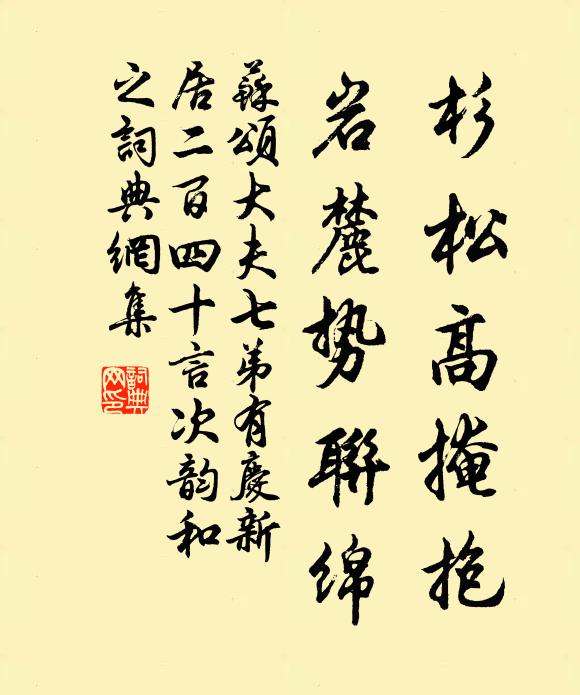 杉松高掩抱
岩麓势聯绵
蘇頌大夫七弟有慶新
居二百四十言次韵和
之詞典網集
詞典
网印